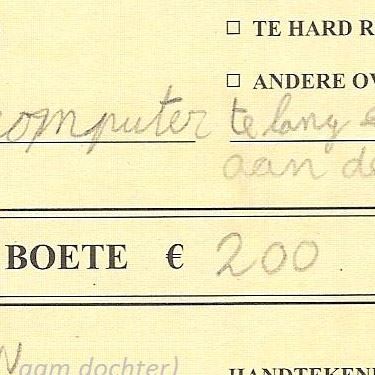 ☐ TE HARD R
☐ ANDERE OV
computer te lang e
aan de
BOETE € 200
Naam dochter)
HANDTEKENI